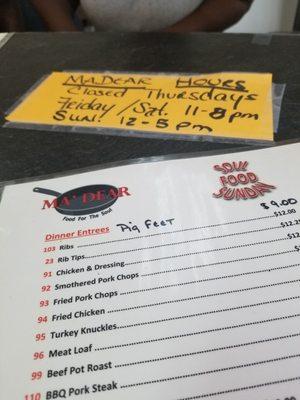 MA.DEAR HOURS
Closed Thursdays
Friday/Sat. 11-8pm
Sun: 12-5pm
MA' DEAR
Food For The Soul
SOUL
FOOD
SUNDAY
Dinner Entrees Pig Feet $9.00
103 Ribs $12.00
23 Rib Tips
91 Chicken & Dressing
92 Smothered Pork Chops
93 Fried Pork Chops
94 Fried Chicken
95 Turkey Knuckles
96 Meat Loaf
99 Beef Pot Roast
110 BBQ Pork Steak